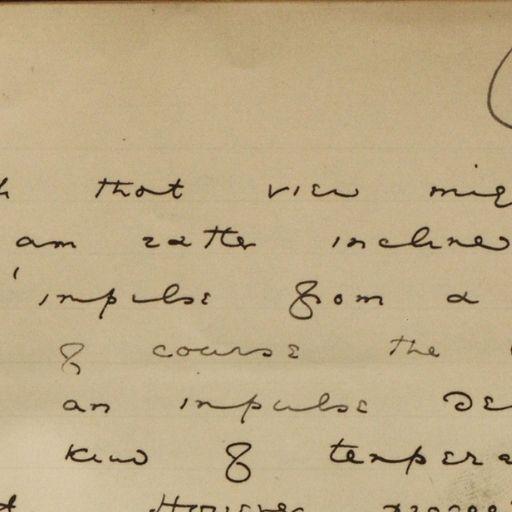 that view
am rather incline
impulse from a
of course the
an impulse
kind of
However